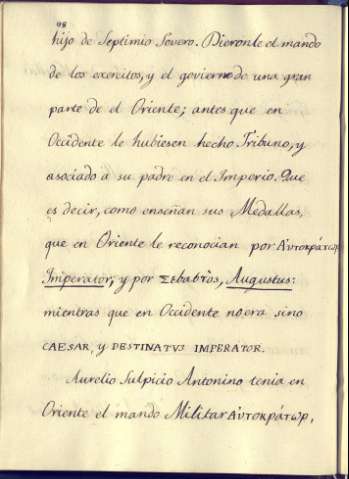 98
hijo de Septimio Severo. Dieronle el mando
de los exercitos, y el govierno de una gran
parte de el Oriente; antes que en
Occidente le hubiesen hecho Tribuno, y
asociado a su padre en el Imperio. Que
es decir, como enseñan sus Medallas,
que en Oriente le reconocian por Αὐτοκράτωρ
Imperator, y por Σεbαbτὸς, Augustus:
mientras que en Occidente no era sino
CAESAR, y DESTINATVS IMPERATOR.
Aurelio Sulpicio Antonino tenia en
Oriente el mando Militar Αὐτοκράτωρ,